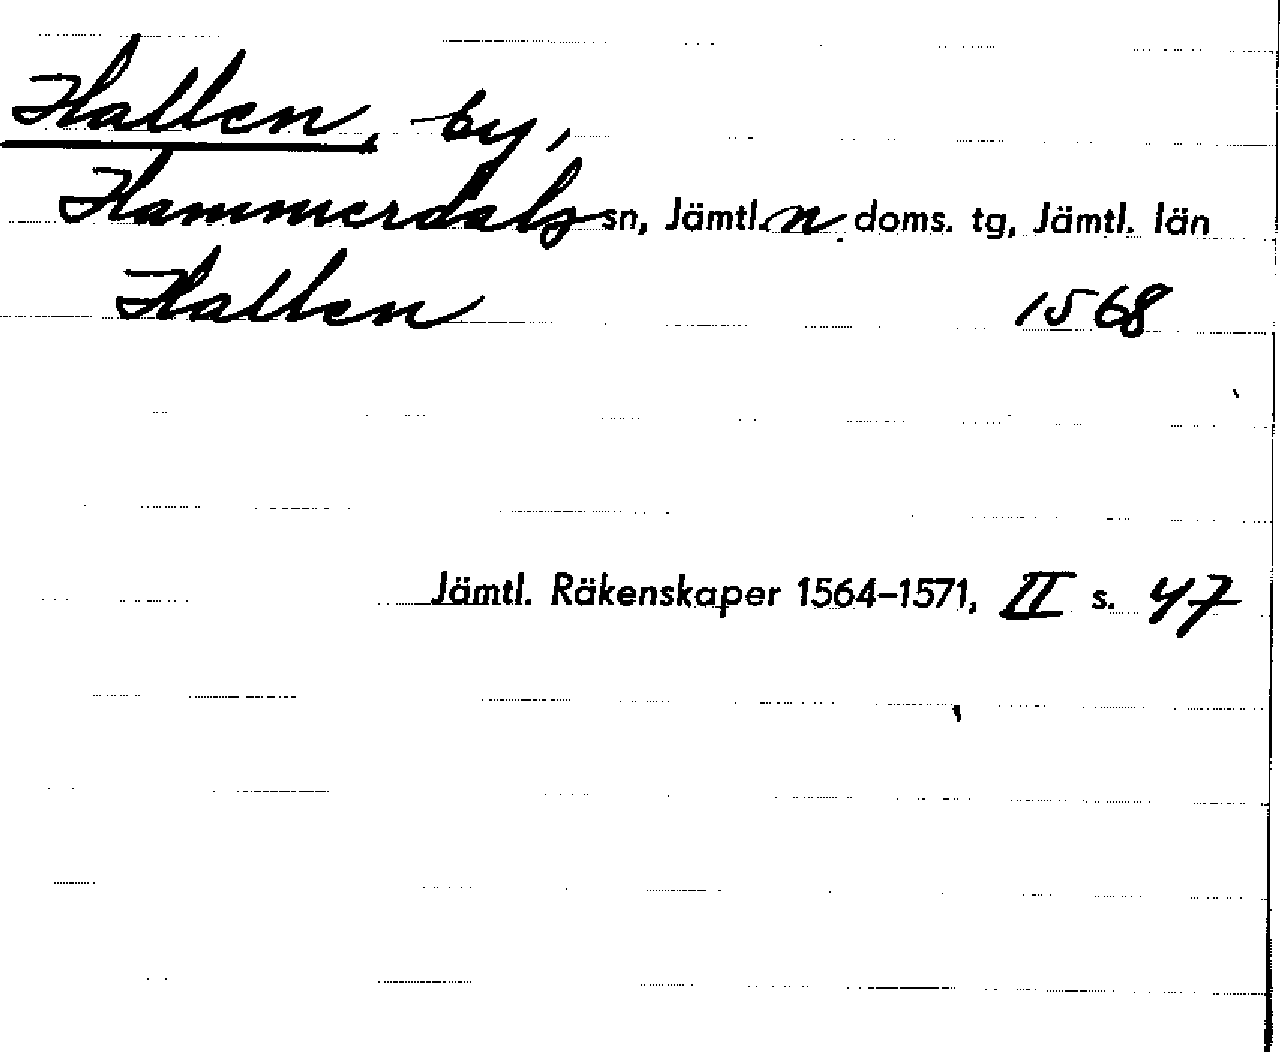 Hallen, by,
Hammerdals sn, Jämtl. n. doms. tg, Jämtl. län
Hallen 1568
Jämtl. Räkenskaper 1564–1571, II s. 47